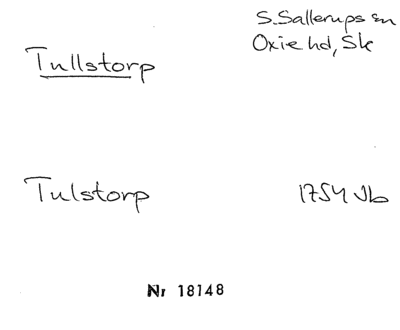 S. Sallerups sn
Oxie hd, Sk
Tullstorp
Tulstorp 1754 Jb
Nr 18148